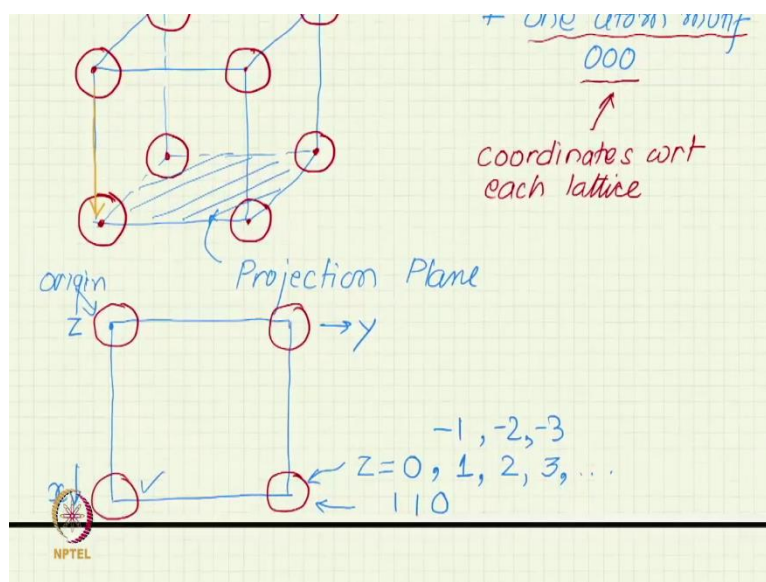 + one atom motif
000
coordinates wrt
each lattice
Projection Plane
origin
Z
→ y
-1, -2, -3
Z = 0, 1, 2, 3, ...
x
110
NPTEL